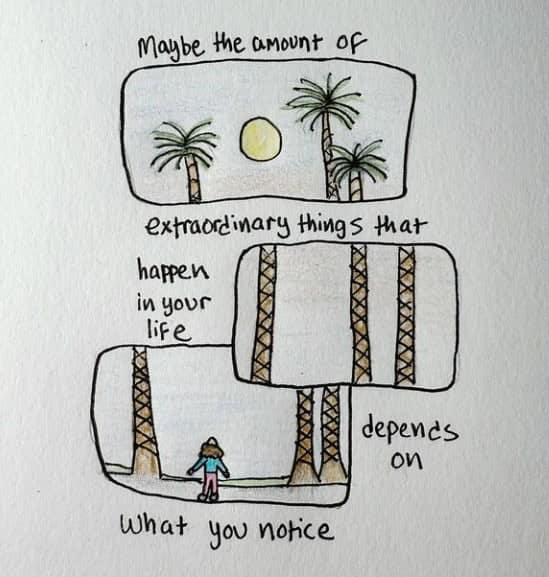 Maybe the amount of
extraordinary things that
happen
in your
life
depends
on
what you notice